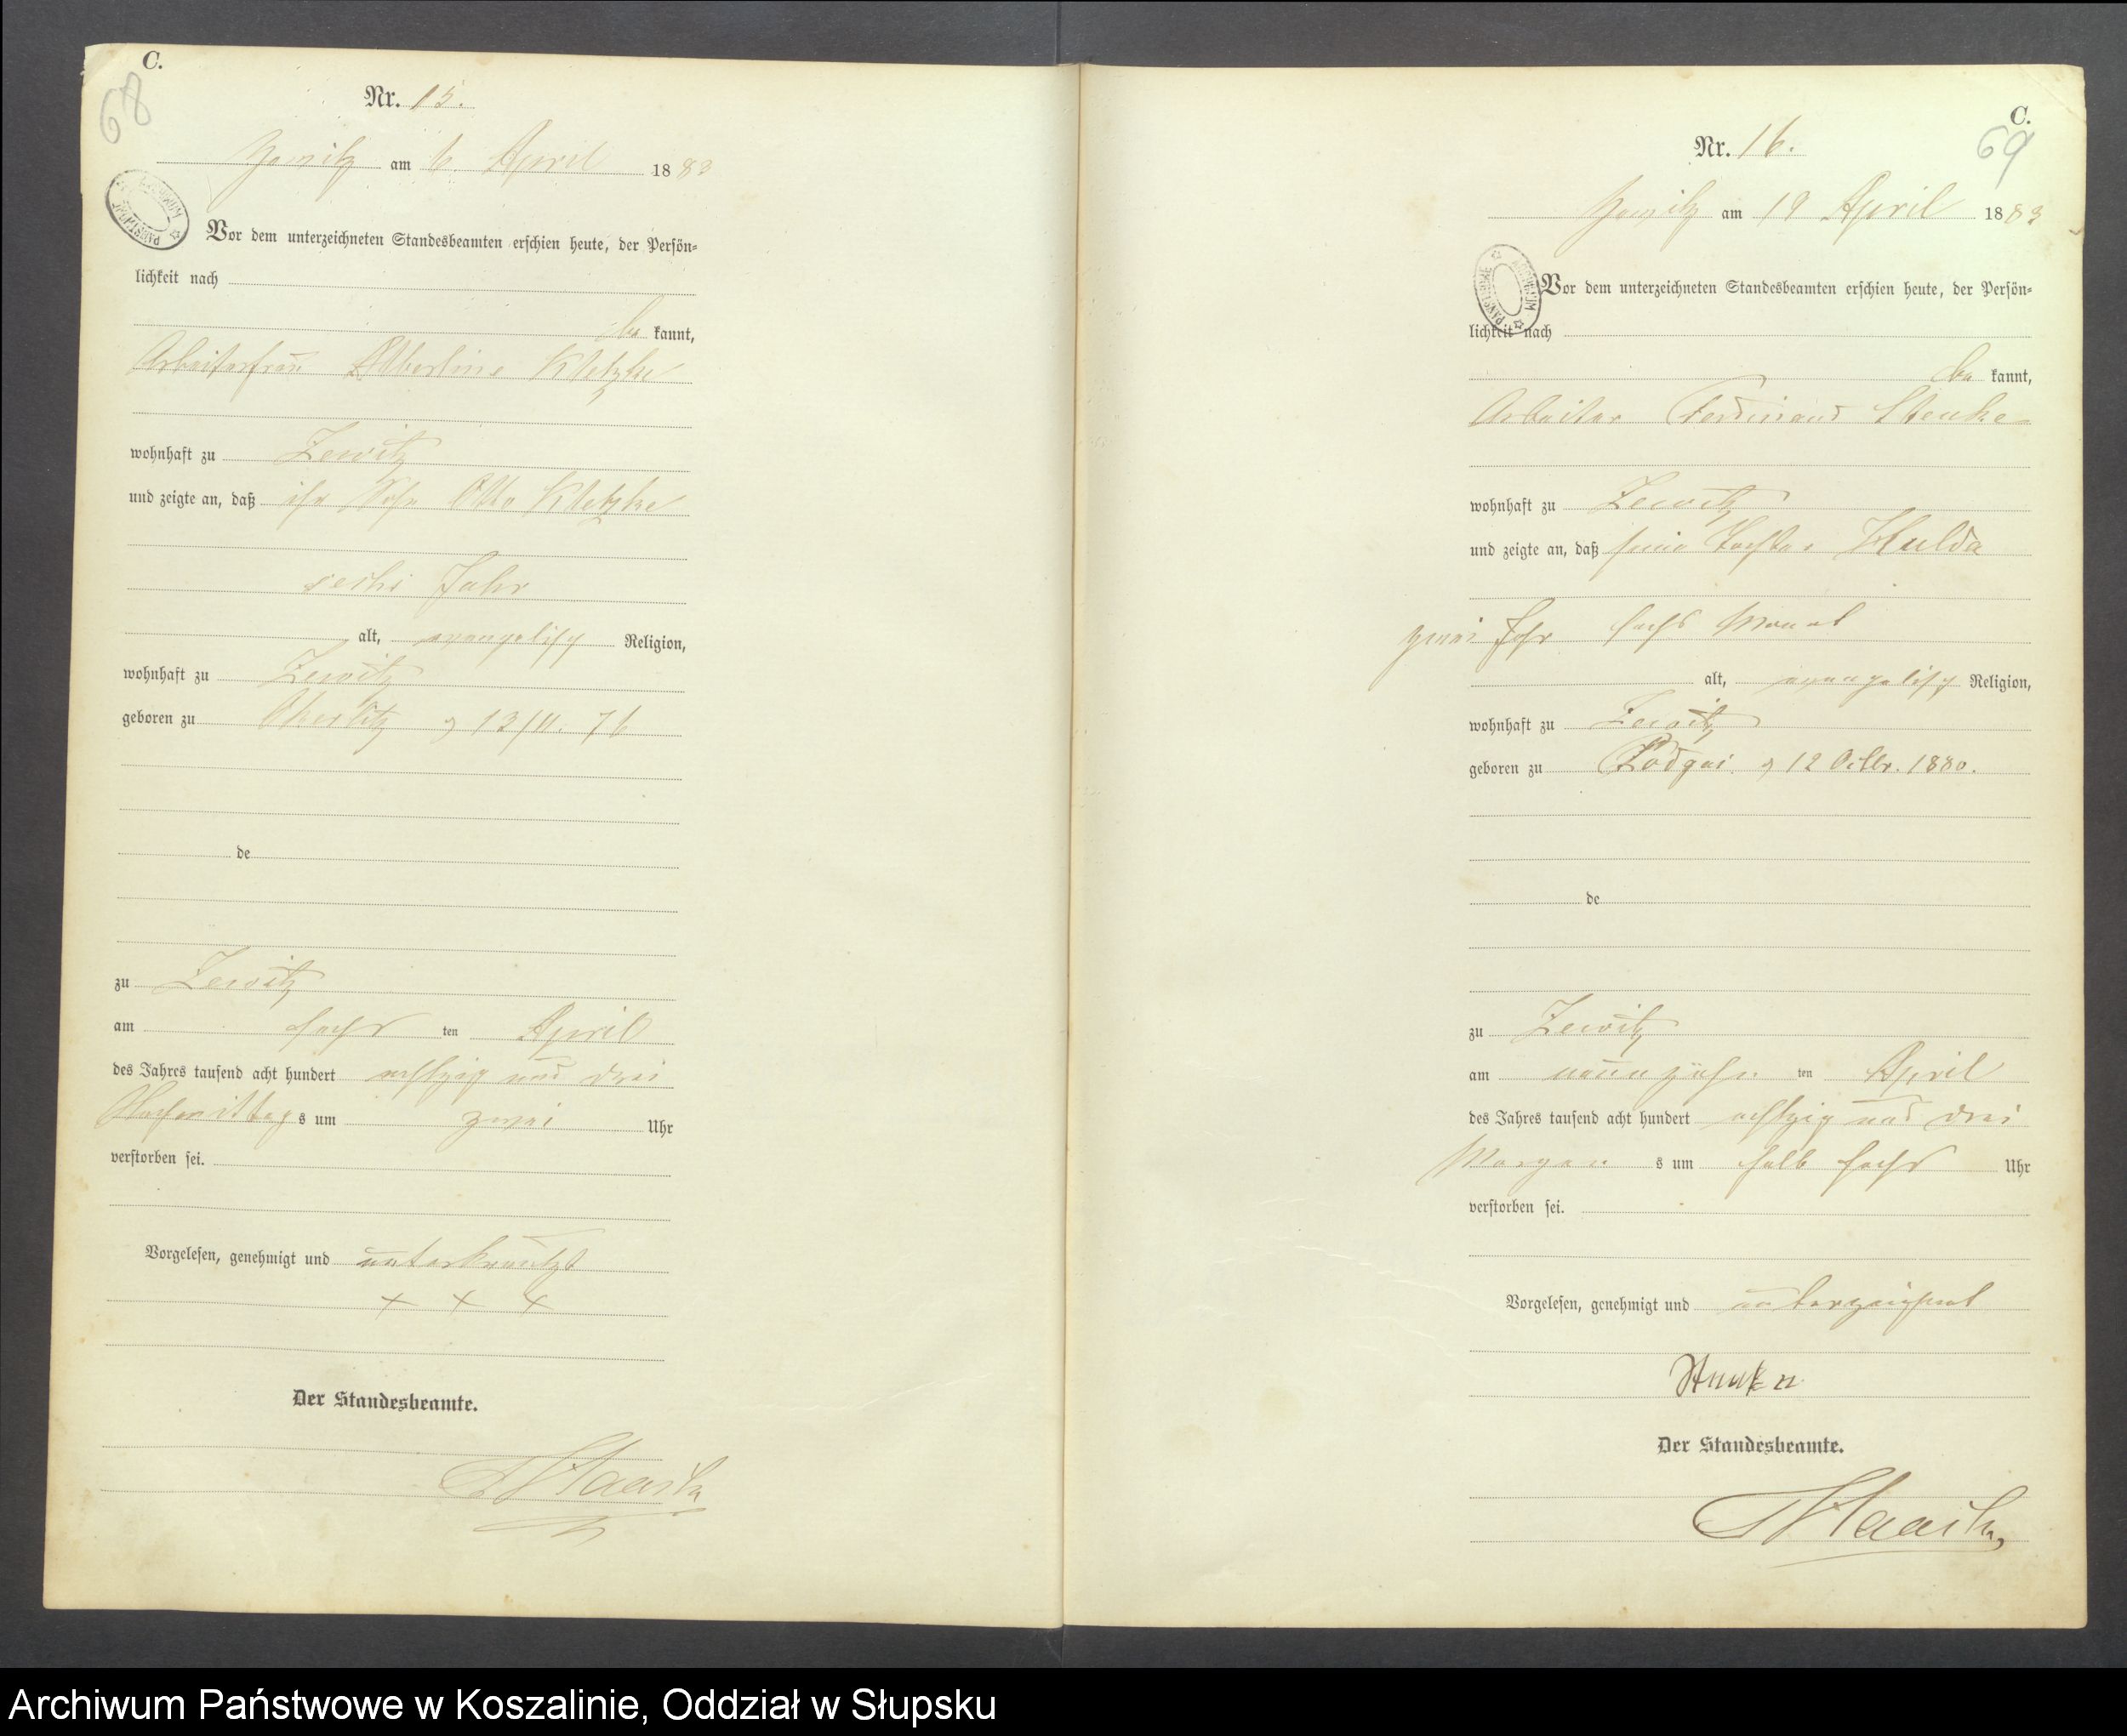 C.
68
Nr. 15.
am 6. April 1883
Vor dem unterzeichneten Standesbeamten erschien heute, der Persön-
lichkeit nach
be kannt,
Arbeiterfrau Albertine Kletzke
wohnhaft zu Zewitz
und zeigte an, daß ihr Sohn Otto Kletzke
sechs Jahr
alt, evangelisch Religion,
wohnhaft zu Zewitz
geboren zu 13/11. 76
de
zu Zewitz
am sechs ten April
des Jahres tausend acht hundert achtzig und drei
Nachmittag s um zwei Uhr
verstorben sei.
Vorgelesen, genehmigt und unterkreuzt
+ + +
Der Standesbeamte.
C.
69
Nr. 16.
am 19 April 1883
Vor dem unterzeichneten Standesbeamten erschien heute, der Persön-
lichkeit nach
be kannt,
Arbeiter Ferdinand Stenke
wohnhaft zu Zewitz
und zeigte an, daß seine Tochter Hulda
zwei Jahr sechs Monat
alt, evangelisch Religion,
wohnhaft zu Zewitz
geboren zu 12 Octbr. 1880.
de
zu Zewitz
am neunzehn ten April
des Jahres tausend acht hundert achtzig und drei
Morgen s um halb sechs Uhr
verstorben sei.
Vorgelesen, genehmigt und unterzeichnet
Stenke
Der Standesbeamte.
Archiwum Państwowe w Koszalinie, Oddział w Słupsku